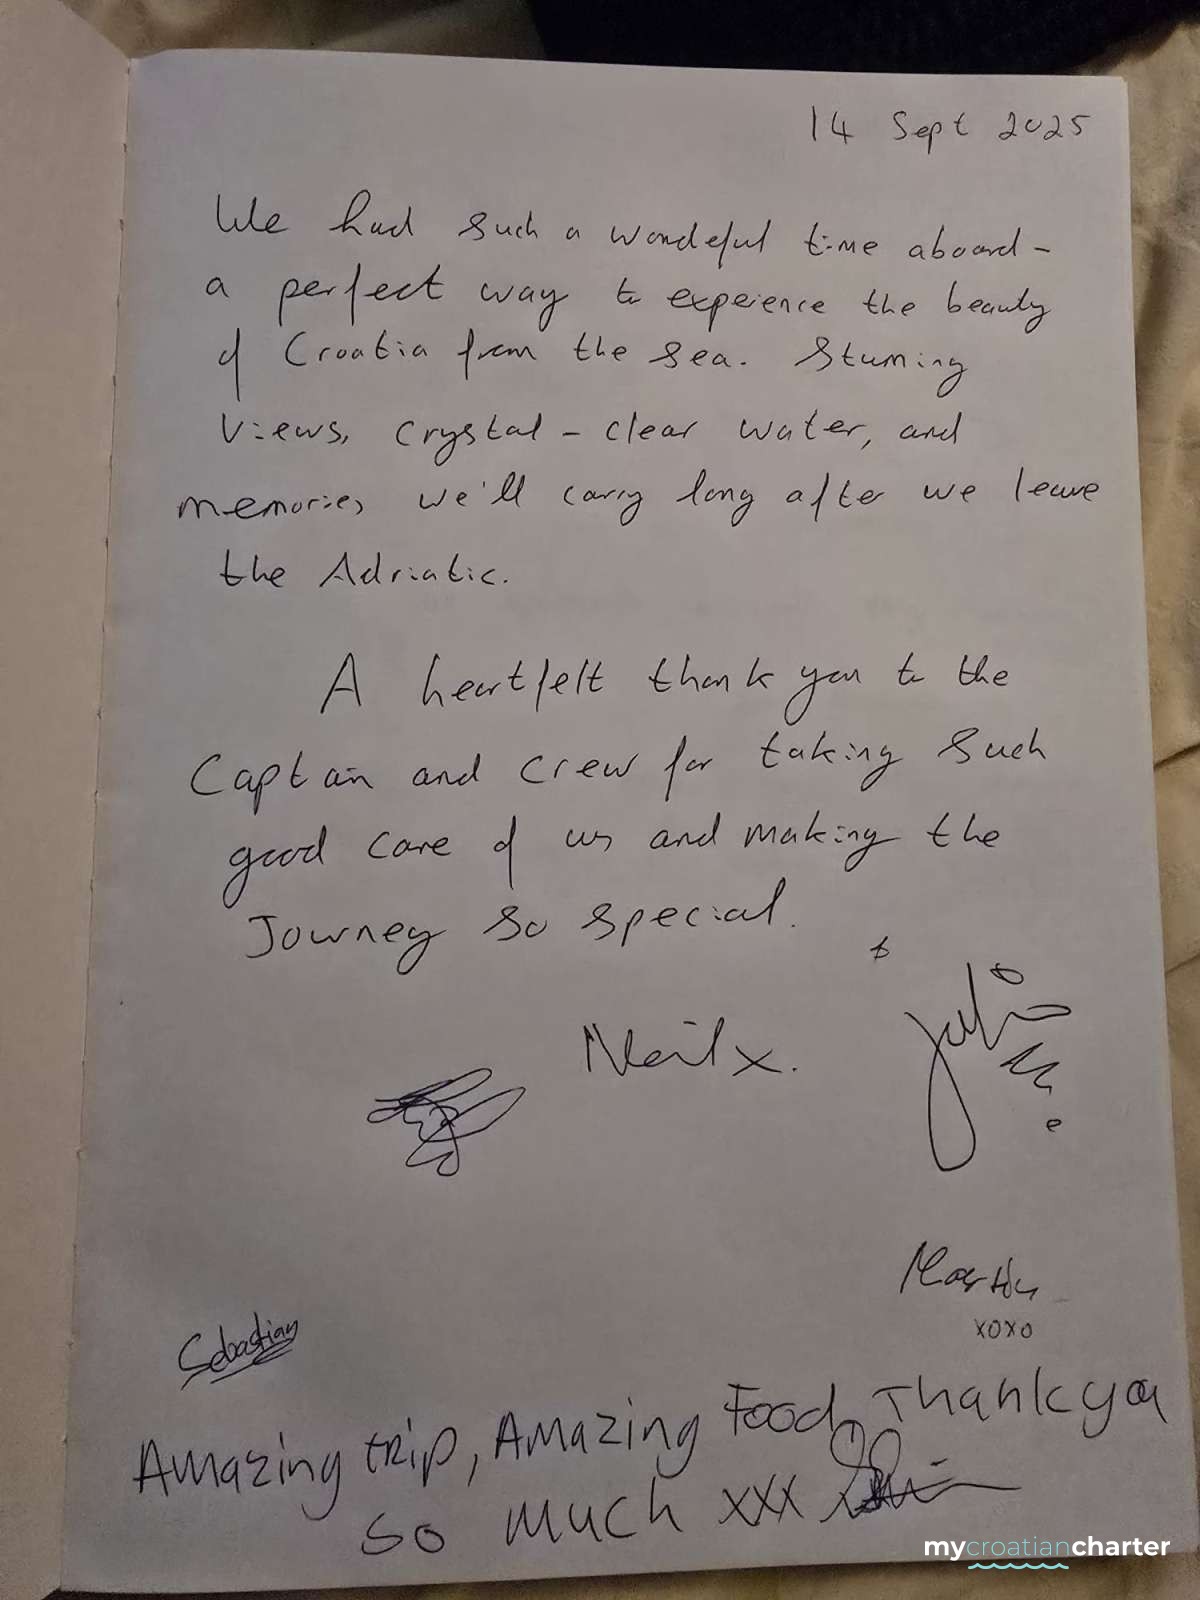 14 Sept 2025
We had such a wonderful time aboard -
a perfect way to experience the beauty
of Croatia from the sea. Stunning
views, crystal-clear water, and
memories we'll carry long after we leave
the Adriatic.
A heartfelt thank you to the
Captain and crew for taking such
good care of us and making the
Journey so special.
Neil x.
Martin
xoxo
Sebastian
Amazing trip, Amazing Food, Thank you
so much xxx
mycroatiancharter